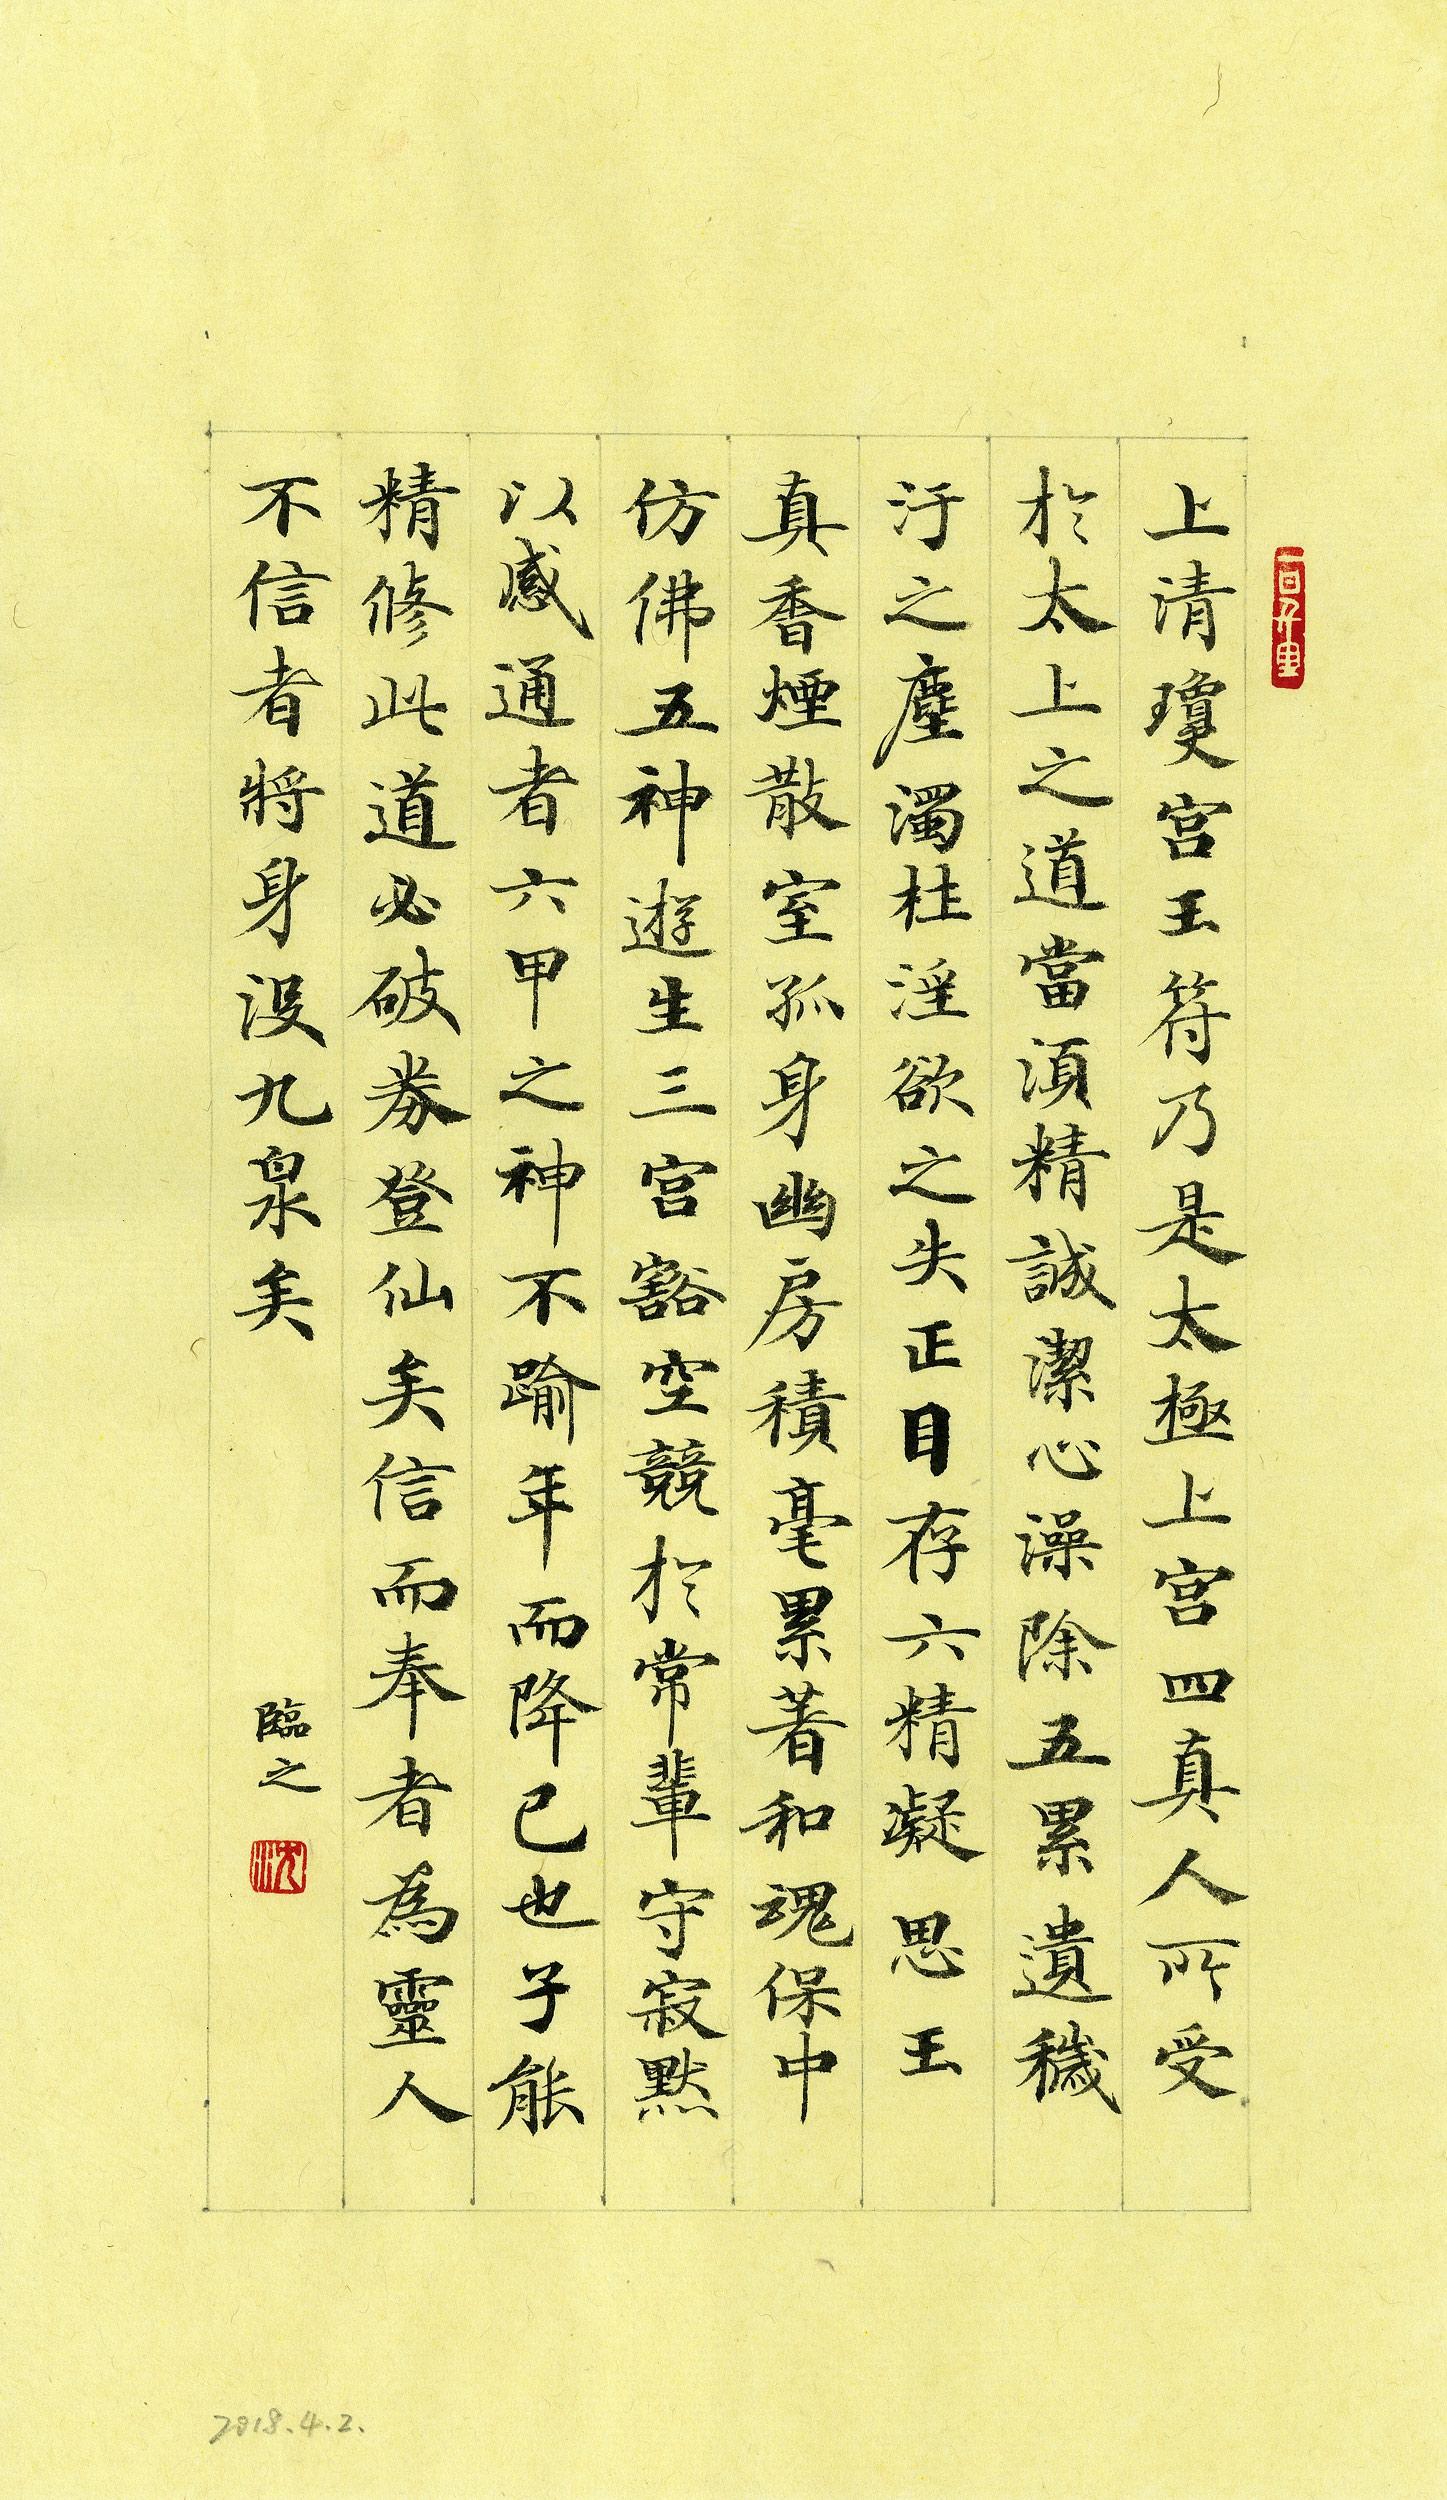 上清瓊宮玉符乃是太極上宮四真人所受
於太上之道當須精誠潔心澡除五累遺穢
汙之塵濁杜淫欲之失正目存六精凝思玉
真香煙散室孤身幽房積毫累著和魂保中
仿佛五神遊生三宮豁空競於常輩守寂默
以感通者六甲之神不踰年而降已也子能
精修此道必破券登仙矣信而奉者為靈人
不信者將身沒九泉矣
臨之
沈
2018.4.2.